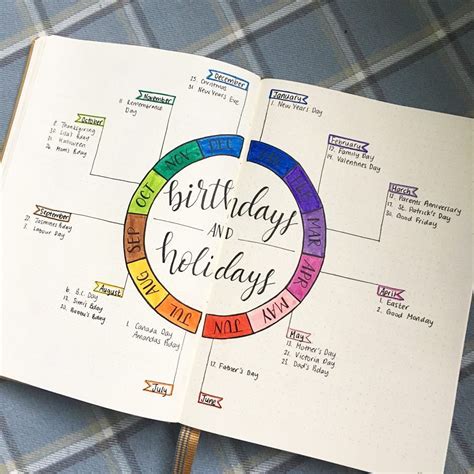 birthdays
AND
holidays
JAN
FEB
MAR
APR
MAY
JUN
JUL
AUG
SEP
OCT
NOV
DEC
January
1. New Year's Day
February
12. Family Day
14. Valentines Day
March
Parents Anniversary
17. St. Patrick's Day
30. Good Friday
April
1. Easter
2. Good Monday
May
13. Mother's Day
21. Victoria Day
Dad's Bday
June
17. Father's Day
July
1. Canada Day
Amanda's Bday
August
6. B.C. Day
Bday
Bday
September
Bday
3. Labour Day
October
8. Thanksgiving
Bday
31. Halloween
Mom's Bday
November
11. Remembrance
Day
December
25. Christmas
31. New Year's Eve